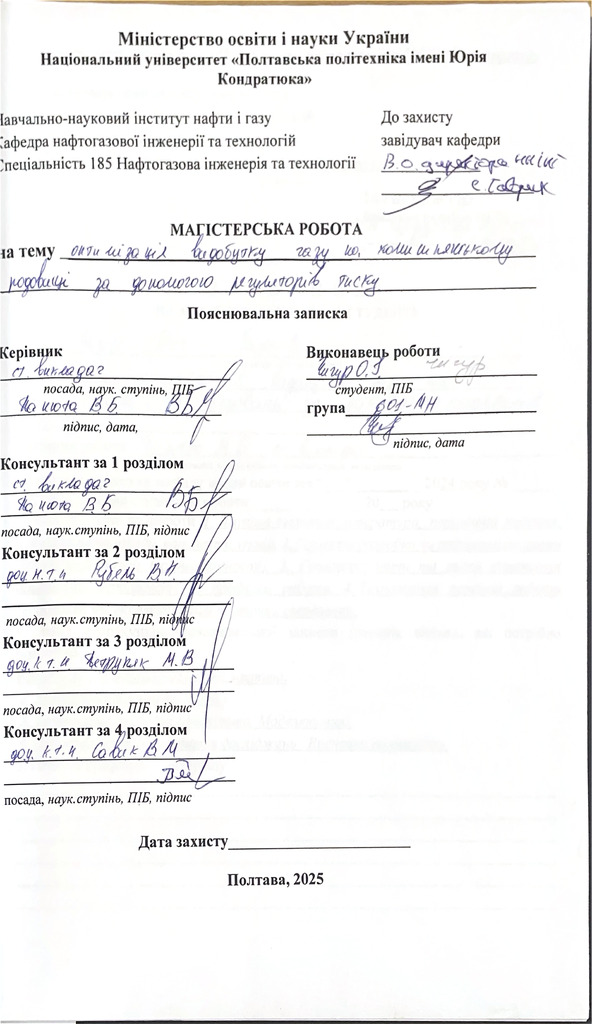 Міністерство освіти і науки України
Національний університет «Полтавська політехніка імені Юрія
Кондратюка»
Навчально-науковий інститут нафти і газу
До захисту
Кафедра нафтогазової інженерії та технологій
завідувач кафедри
Спеціальність 185 Нафтогазова інженерія та технології
В.о. директора ННІНГ
Є. Гаврик
МАГІСТЕРСЬКА РОБОТА
на тему оптимізація видобутку газу на
родовищі за допомогою регуляторів тиску
Пояснювальна записка
Керівник
Виконавець роботи
ст. викладач
Чигур О.І
посада, наук. ступінь, ПІБ
студент, ПІБ
В.Б ВБ
група 601-МН
підпис, дата,
підпис, дата
Консультант за 1 розділом
ст. викладач
В.Б ВБ
посада, наук.ступінь, ПІБ, підпис
Консультант за 2 розділом
доц. к.т.н Рубель В.П.
посада, наук.ступінь, ПІБ, підпис
Консультант за 3 розділом
доц. к.т.н Петруняк М.В
посада, наук.ступінь, ПІБ, підпис
Консультант за 4 розділом
доц. к.т.н. Савик В.М
посада, наук.ступінь, ПІБ, підпис
Дата захисту
Полтава, 2025